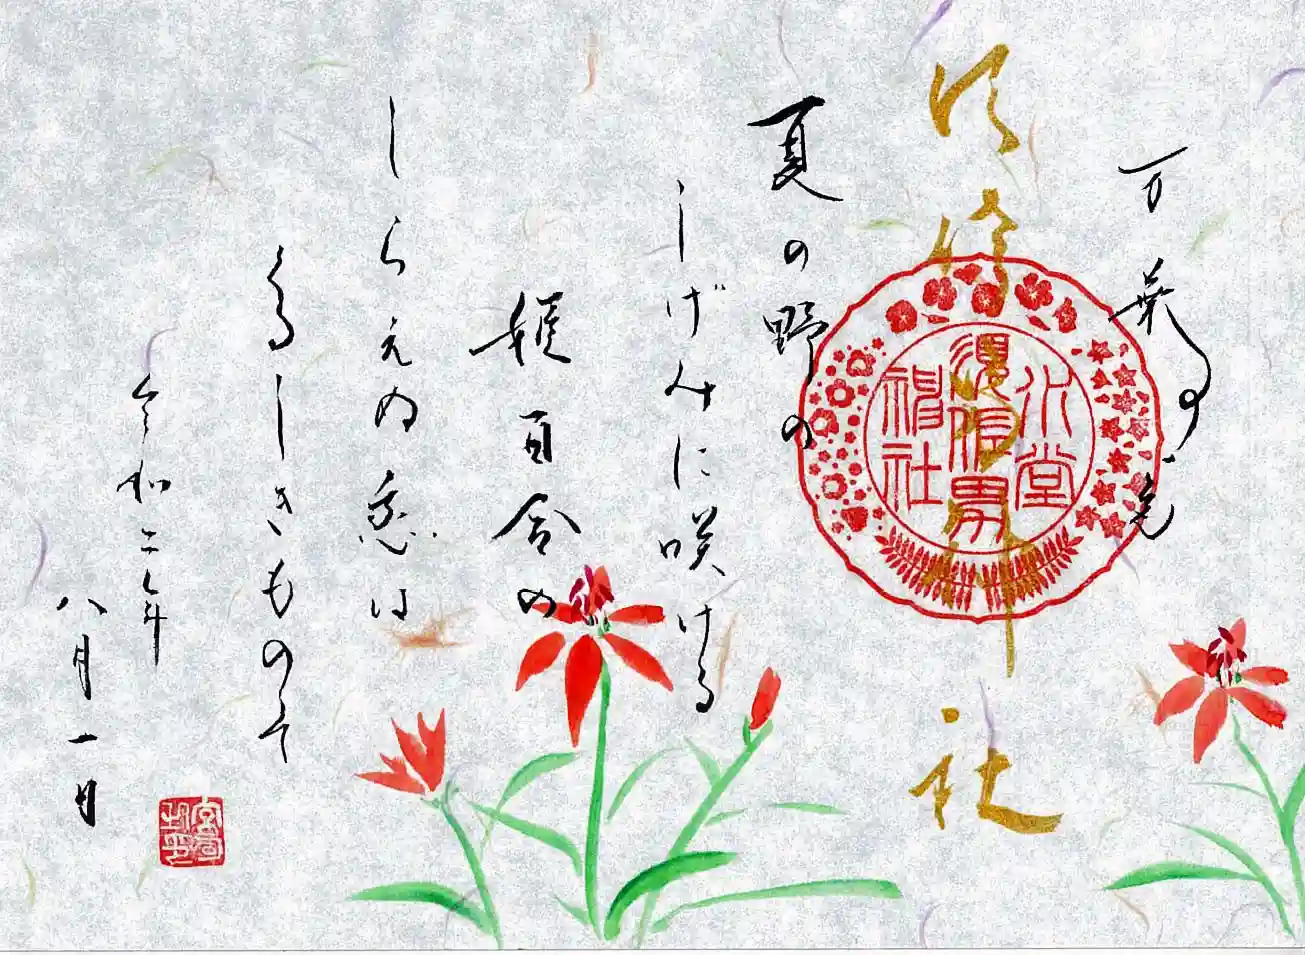 万葉の花
須佐男神社
須佐男
神社
夏の野の
しげみに咲ける
姫百合の
しらえぬ恋は
くるしきものそ
令和二年
八月一日
宮司之印